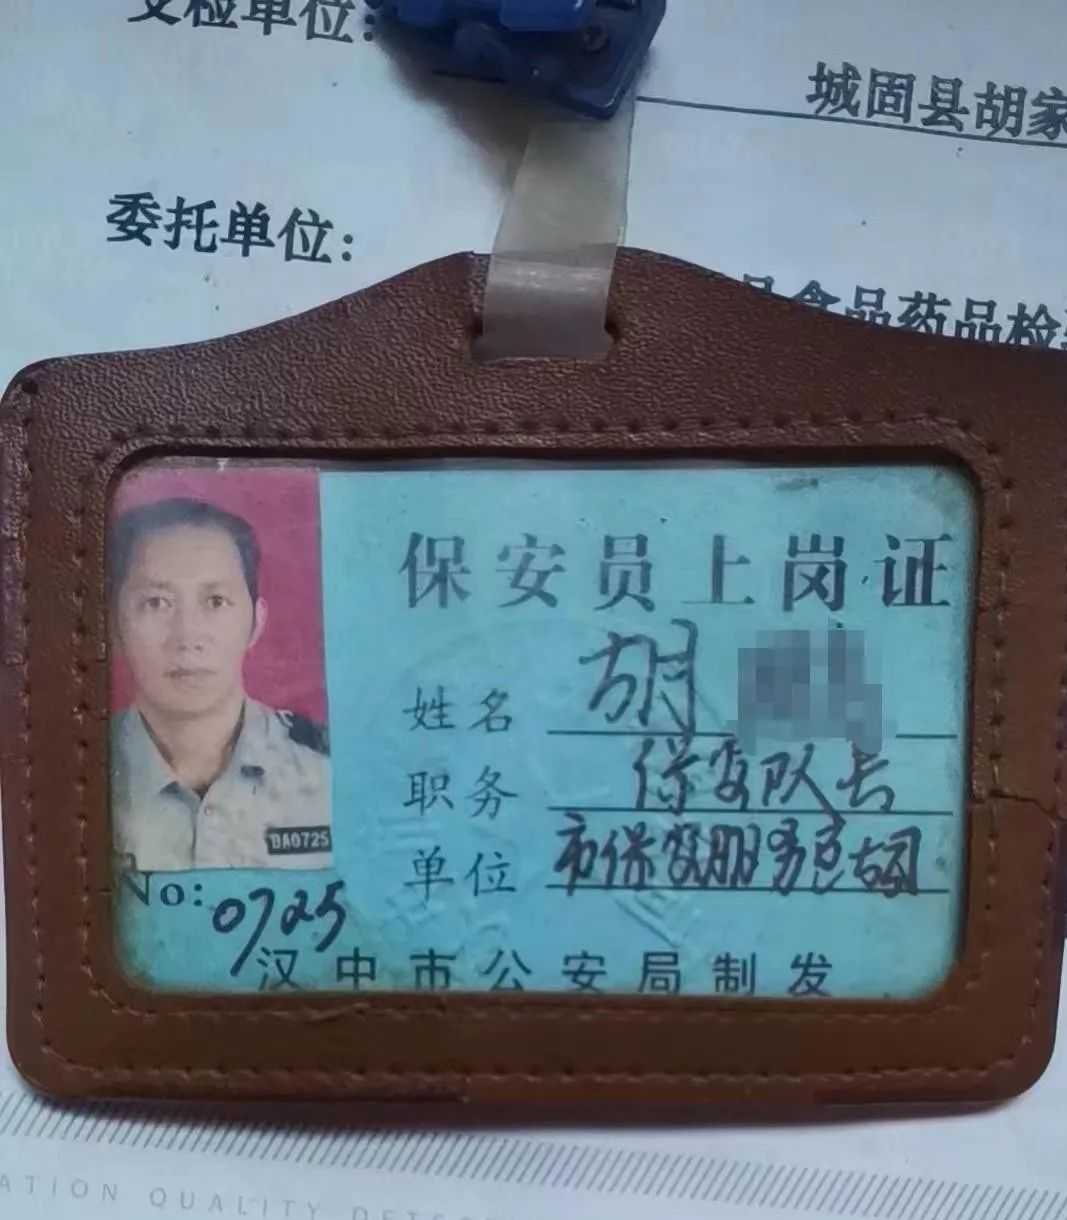 受检单位:
城固县胡家
委托单位:
食品药品检
保安员上岗证
姓名 胡
职务 保安队长
单位 市保安服务总公司
DA0725
No: 0725
汉中市公安局制发
ATION QUALITY DETEC